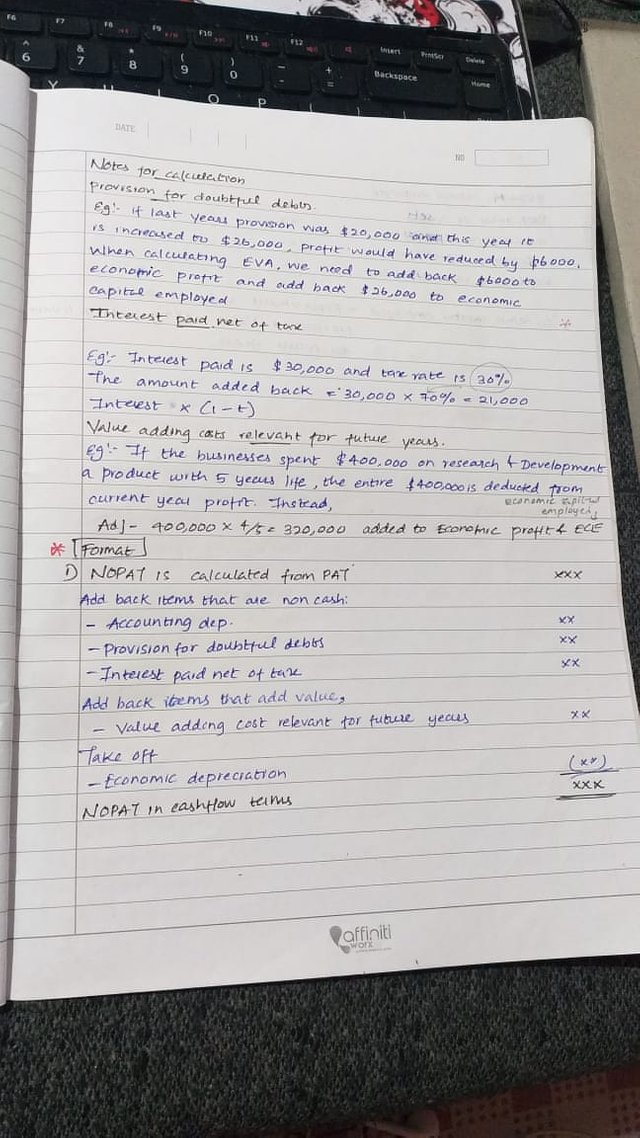 F6 F7 F8 F9 F10 F11 F12 Insert PrntScr Delete
^ 6 & 7 * 8 ( 9 ) 0 - + = Backspace Home
Y U O P
DATE
NO
Notes for calculation
provision for doubtful debts.
Eg:- if last years provision was $20,000 and this year it
is increased to $26,000, profit would have reduced by $6000.
When calculating EVA, we need to add back $6000 to
economic profit and add back $26,000 to economic
capital employed
Interest paid net of tax *
Eg:- Interest paid is $30,000 and tax rate is 30%
The amount added back = 30,000 x 70% = 21,000
Interest x (1-t)
Value adding costs relevant for future years.
Eg:- If the businesses spent $400,000 on research & Development
a product with 5 years life, the entire $400,000 is deducted from
current year profit. Instead, economic capital
employed
Adj - 400,000 x 4/5 = 320,000 added to Economic profit & ECE
* Format
1) NOPAT is calculated from PAT xxx
Add back items that are non cash:
- Accounting dep. xx
- Provision for doubtful debts xx
- Interest paid net of tax xx
Add back items that add value,
- Value adding cost relevant for future years xx
Take off
- Economic depreciation (xx)
NOPAT in cashflow terms xxx
affiniti
worx